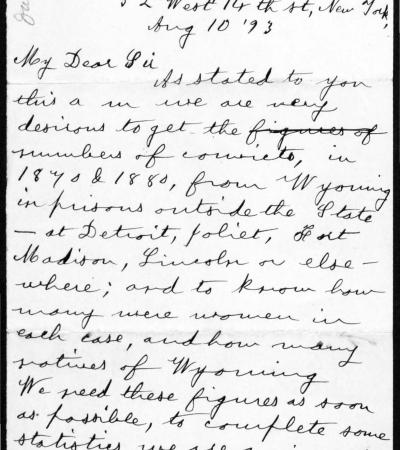 52 West 14th st, New York,
Aug 10 '93
My Dear Sir
As stated to you
this a m we are very
desirous to get the figures of
numbers of convicts, in
1870 & 1880, from Wyoming
in prisons outside the State
— at Detroit, Joliet, Fort
Madison, Lincoln or else-
where; and to know how
many were women in
each case, and how many
natives of Wyoming
We need these figures as soon
as possible, to complete some
statistics we are